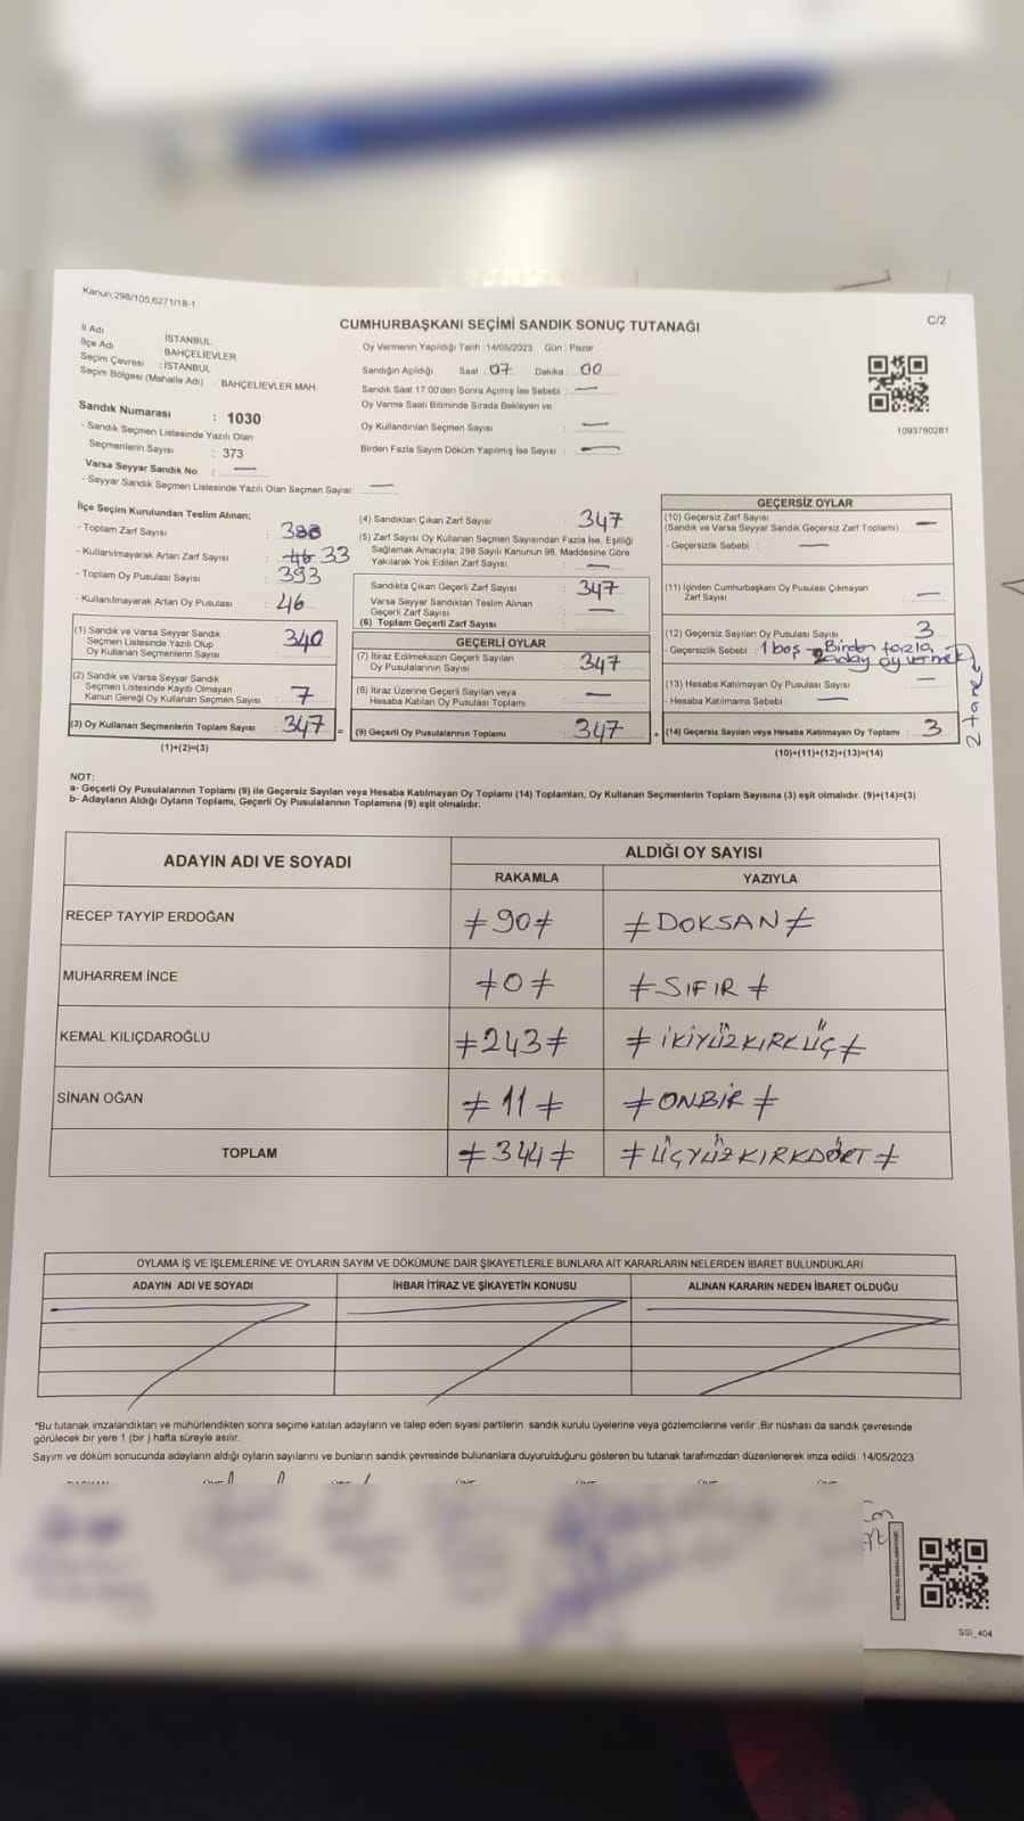 Kanun:298/105,6271/18-1
C/2
CUMHURBAŞKANI SEÇİMİ SANDIK SONUÇ TUTANAĞI
İl Adı İSTANBUL
İlçe Adı BAHÇELİEVLER
Seçim Çevresi : İSTANBUL
Seçim Bölgesi (Mahalle Adı) BAHÇELİEVLER MAH.
Oy Vermenin Yapıldığı Tarih :14/05/2023 Gün : Pazar
Sandığın Açıldığı Saat : 07 Dakika : 00
Sandık Saat 17:00'den Sonra Açılmış İse Sebebi : —
Oy Verme Saati Bitiminde Sırada Bekleyen ve
Oy Kullandırılan Seçmen Sayısı : —
Birden Fazla Sayım Döküm Yapılmış İse Sayısı : —
1093780281
Sandık Numarası : 1030
- Sandık Seçmen Listesinde Yazılı Olan
Seçmenlerin Sayısı : 373
Varsa Seyyar Sandık No : —
- Seyyar Sandık Seçmen Listesinde Yazılı Olan Seçmen Sayısı: —
İlçe Seçim Kurulundan Teslim Alınan;
- Toplam Zarf Sayısı :
- Kullanılmayarak Artan Zarf Sayısı : 46 33
- Toplam Oy Pusulası Sayısı : 393
- Kullanılmayarak Artan Oy Pusulası : 46
(1) Sandık ve Varsa Seyyar Sandık
Seçmen Listesinde Yazılı Olup
Oy Kullanan Seçmenlerin Sayısı : 340
(2) Sandık ve Varsa Seyyar Sandık
Seçmen Listesinde Kayıtlı Olmayan
Kanun Gereği Oy Kullanan Seçmen Sayısı : 7
(3) Oy Kullanan Seçmenlerin Toplam Sayısı : 347 =
(1)+(2)=(3)
(4) Sandıktan Çıkan Zarf Sayısı : 347
(5) Zarf Sayısı Oy Kullanan Seçmen Sayısından Fazla İse, Eşitliği
Sağlamak Amacıyla; 298 Sayılı Kanunun 98. Maddesine Göre
Yakılarak Yok Edilen Zarf Sayısı : —
Sandıkta Çıkan Geçerli Zarf Sayısı : 347
Varsa Seyyar Sandıktan Teslim Alınan
Geçerli Zarf Sayısı : —
(6) Toplam Geçerli Zarf Sayısı
GEÇERLİ OYLAR
(7) İtiraz Edilmeksizin Geçerli Sayılan
Oy Pusulalarının Sayısı : 347
(8) İtiraz Üzerine Geçerli Sayılan veya
Hesaba Katılan Oy Pusulası Toplamı : —
(9) Geçerli Oy Pusulalarının Toplamı : 347 +
GEÇERSİZ OYLAR
(10) Geçersiz Zarf Sayısı
(Sandık ve Varsa Seyyar Sandık Geçersiz Zarf Toplamı) : —
- Geçersizlik Sebebi : —
(11) İçinden Cumhurbaşkanı Oy Pusulası Çıkmayan
Zarf Sayısı : —
(12) Geçersiz Sayılan Oy Pusulası Sayısı : 3
- Geçersizlik Sebebi : 1 boş - Birden fazla
aday oy vermek
2 tane
(13) Hesaba Katılmayan Oy Pusulası Sayısı : —
- Hesaba Katılmama Sebebi : —
(14) Geçersiz Sayılan veya Hesaba Katılmayan Oy Toplamı : 3
(10)+(11)+(12)+(13)=(14)
NOT:
a- Geçerli Oy Pusulalarının Toplamı (9) ile Geçersiz Sayılan veya Hesaba Katılmayan Oy Toplamı (14) Toplamları, Oy Kullanan Seçmenlerin Toplam Sayısına (3) eşit olmalıdır. (9)+(14)=(3)
b- Adayların Aldığı Oyların Toplamı, Geçerli Oy Pusulalarının Toplamına (9) eşit olmalıdır.
ADAYIN ADI VE SOYADI
ALDIĞI OY SAYISI
RAKAMLA YAZIYLA
RECEP TAYYİP ERDOĞAN ≠90≠ ≠DOKSAN≠
MUHARREM İNCE ≠0≠ ≠SIFIR≠
KEMAL KILIÇDAROĞLU ≠243≠ ≠İKİYÜZKIRKÜÇ≠
SİNAN OĞAN ≠11≠ ≠ONBİR≠
TOPLAM ≠344≠ ≠ÜÇYÜZKIRKDÖRT≠
OYLAMA İŞ VE İŞLEMLERİNE VE OYLARIN SAYIM VE DÖKÜMÜNE DAİR ŞİKAYETLERLE BUNLARA AİT KARARLARIN NELERDEN İBARET BULUNDUKLARI
ADAYIN ADI VE SOYADI İHBAR İTİRAZ VE ŞİKAYETİN KONUSU ALINAN KARARIN NEDEN İBARET OLDUĞU
*Bu tutanak imzalandıktan ve mühürlendikten sonra seçime katılan adayların ve talep eden siyasi partilerin sandık kurulu üyelerine veya gözlemcilerine verilir. Bir nüshası da sandık çevresinde
görülecek bir yere 1 (bir ) hafta süreyle asılır.
Sayım ve döküm sonucunda adayların aldığı oyların sayılarını ve bunların sandık çevresinde bulunanlara duyurulduğunu gösteren bu tutanak tarafımızdan düzenlenerek imza edildi. 14/05/2023
SGI_404